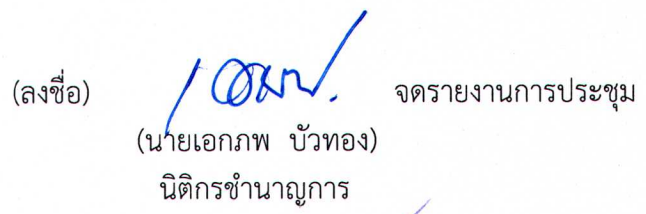 (ลงชื่อ) จดรายงานการประชุม
(นายเอกภพ บัวทอง)
นิติกรชำนาญการ